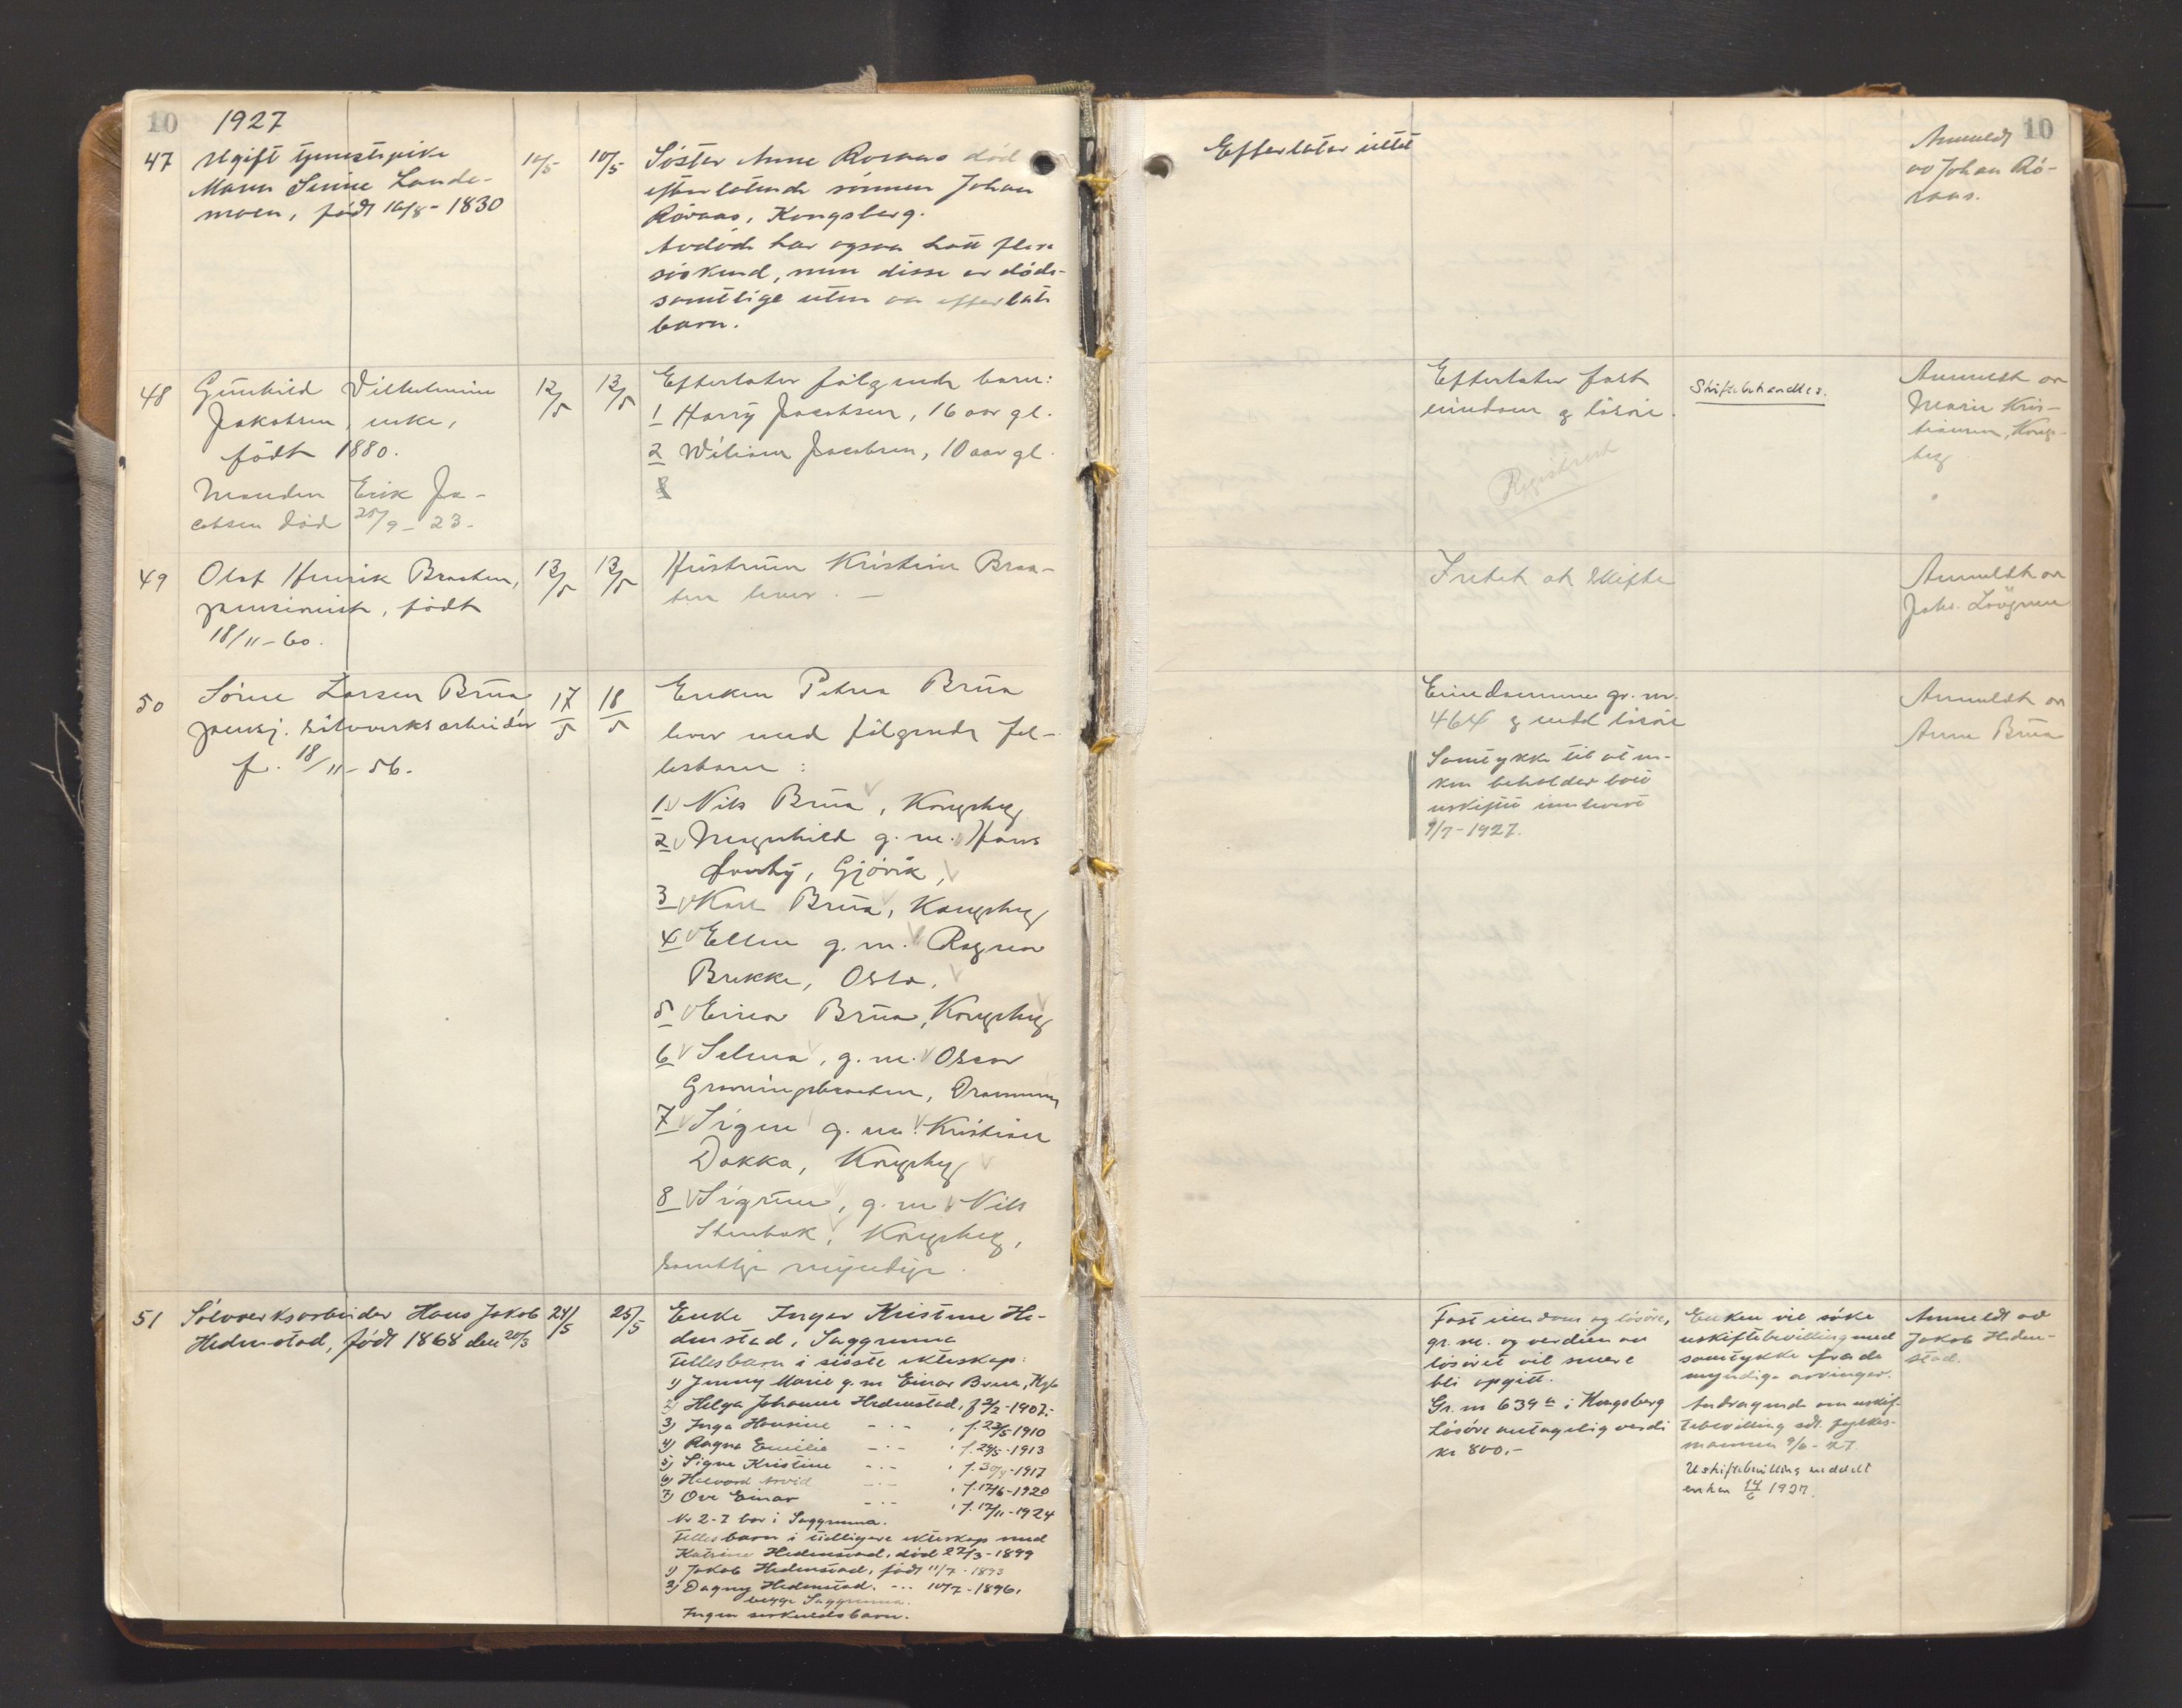 10 1927
47 Ugift tjenestepike
Maren Sirine Lande-
moen, født 16/8-1830
10/5 10/5
Søster Anne Roraas død
efterlatende sönnen Johan
Röraas, Kongsberg.
Avdöde har ogsaa hatt flere
söskend, men disse er döde
samtlige uten aa efterlate
barn.
Efterlater intet
Anmeldt
av Johan Rö-
raas.
10
48 Gunhild Vilhelmine
Jakobsen, enke,
födt 1880.
Manden Erik Ja-
cobsen död 25/9-23.
12/5 13/5
Efterlater fölgende barn:
1 Harry Jacobsen, 16 aar gl.
2 Wiliam Jacobsen, 10 aar gl.
3
Efterlater fast
eiendom og lösöre.
Registrert
Skiftebehandles.
Anmeldt av
Marie Kris-
tiansen, Kongs-
berg
49 Olaf Henrik Braaten,
pensionist, födt
18/11-60.
13/5 13/5
Hustruen Kristine Braa-
ten lever. —
Intet at skifte
Anmeldt av
Johs. Lövgren
50 Sörine Larsen Brua
pensj. sölvverksarbeider
f. 18/11-56.
17/5 18/5
Enken Petrea Brua
lever med fölgende fel-
lesbarn:
1 Nils Brua, Kongsberg
2 Magnhild g. m. Hans
Överby, Gjövik,
3 Karl Brua, Kongsberg
4 Ellen g. m. Ragnar
Brekke, Oslo,
5 Einar Brua, Kongsberg
6 Selma, g. m. Oscar
Grøningsbraaten, Drammen
7 Signe g. m. Kristian
Dokka, Kongsberg
8 Sigrun, g. m. Nils
Stenbak, Kongsberg,
samtlige myndige.
Eiendommen gr. nr.
464 og endel lösöre
Samtykke til at en-
ken beholder boet
uskiftet innlevert
9/7-1927.
Anmeldt av
Anne Brua
51 Sölvverksarbeider Hans Jakob
Hedenstad, født 1868 den 20/3
24/5 25/5
Enke Inger Kristine He-
denstad, Saggrenna
Fellesbarn i siste ekteskap:
1) Jenny Marie g. m Einar Brua, Kgb
2) Helga Johanne Hedenstad, f 2/2-1907.
3) Inga Hansine -.- , f. 22/5 1910
4) Ragna Emilie -.- , f. 24/5-1913
5) Signe Kristine -.- , f. 30/4-1917
6) Halvard Arvid -.- , f. 17/6-1920
7) Ove Einar -.- , f. 17/11-1924
Nr 2-7 bor i Saggrenna.
Fellesbarn i tidligere ekteskap med
Katrine Hedenstad, död 27/3-1899
1) Jakob Hedenstad, födt 11/7-1893
2) Dagny Hedenstad. -.- 10/7-1896,
begge Saggrenna.
Ingen særkuldsbarn.
Fast eiendom og lösöre,
gr. nr. og verdien av
lösöret vil senere
bli opgitt.
Gr. nr 639 a i Kongsberg
Lösöre antagelig verdi
kr 800,-
Enken vil söke
uskiftebevilling med
samtykke fra de
myndige arvinger.
Andragende om uskif-
tebevilling sdt. fylkes-
mannen 9/6-27.
Uskiftebevilling meddelt
enken 14/6 1927.
Anmeldt av
Jakob Heden-
stad.